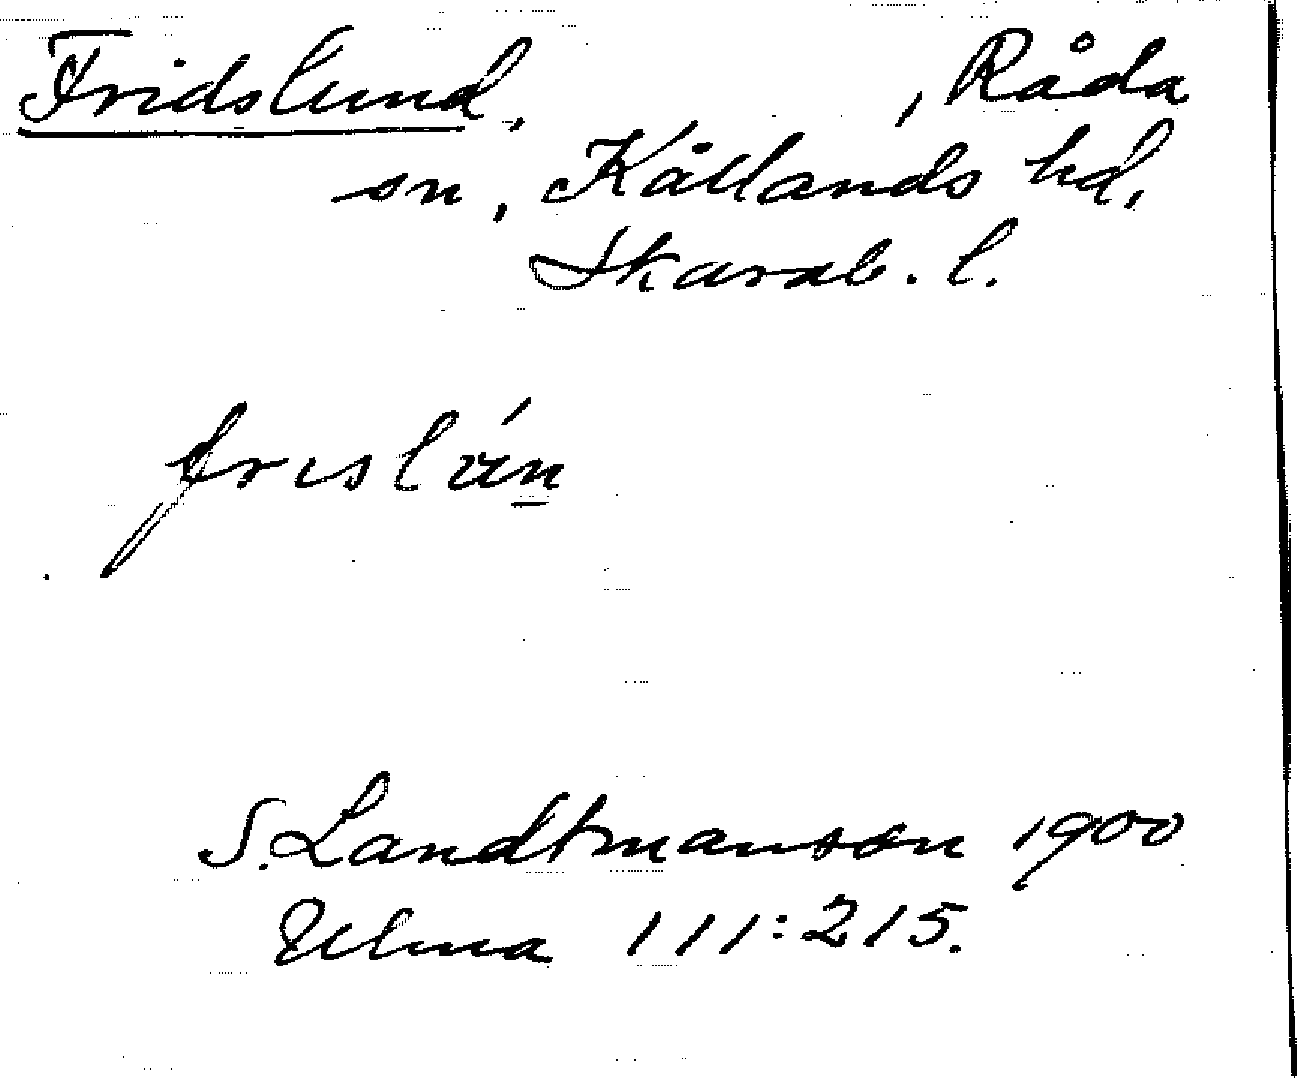 Fridslund, , Råda
sn, Kållands hd,
Skarab. l.
S. Landtmanson 1900
Ulma 111:215.